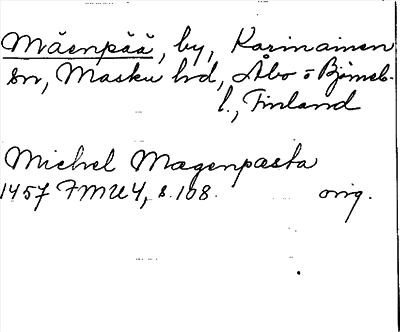 Mäenpää, by, Karinainen
sn, Masku hd, Åbo o Björneb.
l., Finland
Michel Magenpæsta
1457 FMU 4, s. 108. orig.